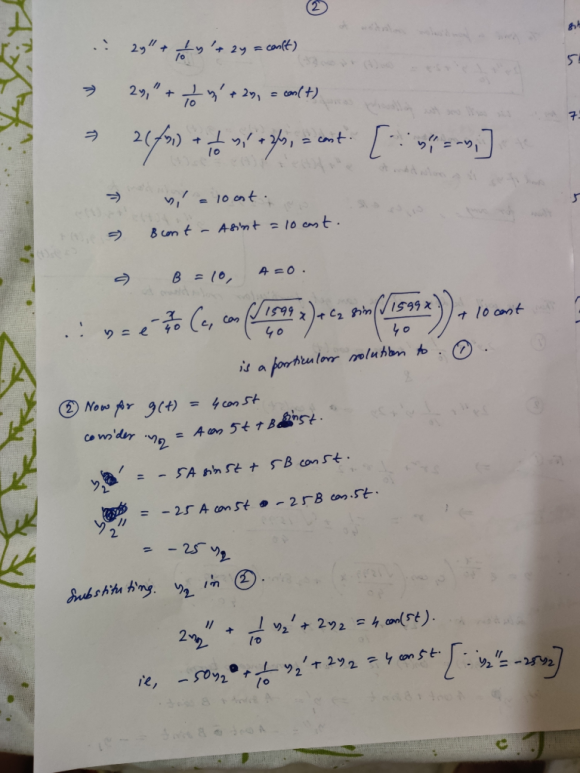 ②
∴ 2y'' + 1/10 y' + 2y = cos(t)
⇒ 2y₁'' + 1/10 y₁' + 2y₁ = cos(t)
⇒ 2(-y₁) + 1/10 y₁' + 2y₁ = cos t. [∵ y₁'' = -y₁]
⇒ y₁' = 10 cos t.
⇒ B cos t - A sin t = 10 cos t.
⇒ B = 10, A = 0.
∴ y = e^(-x/40) (c₁ cos(√1599 x/40) + c₂ sin(√1599 x/40)) + 10 cos t
is a particular solution to ①.
② Now for g(t) = 4 cos 5t
consider y₂ = A cos 5t + B sin 5t.
y₂' = -5A sin 5t + 5B cos 5t.
y₂'' = -25 A cos 5t - 25 B cos 5t.
= -25 y₂
Substituting y₂ in ②.
2y₂'' + 1/10 y₂' + 2y₂ = 4 cos(5t).
ie, -50y₂ + 1/10 y₂' + 2y₂ = 4 cos 5t. [∵ y₂'' = -25y₂]